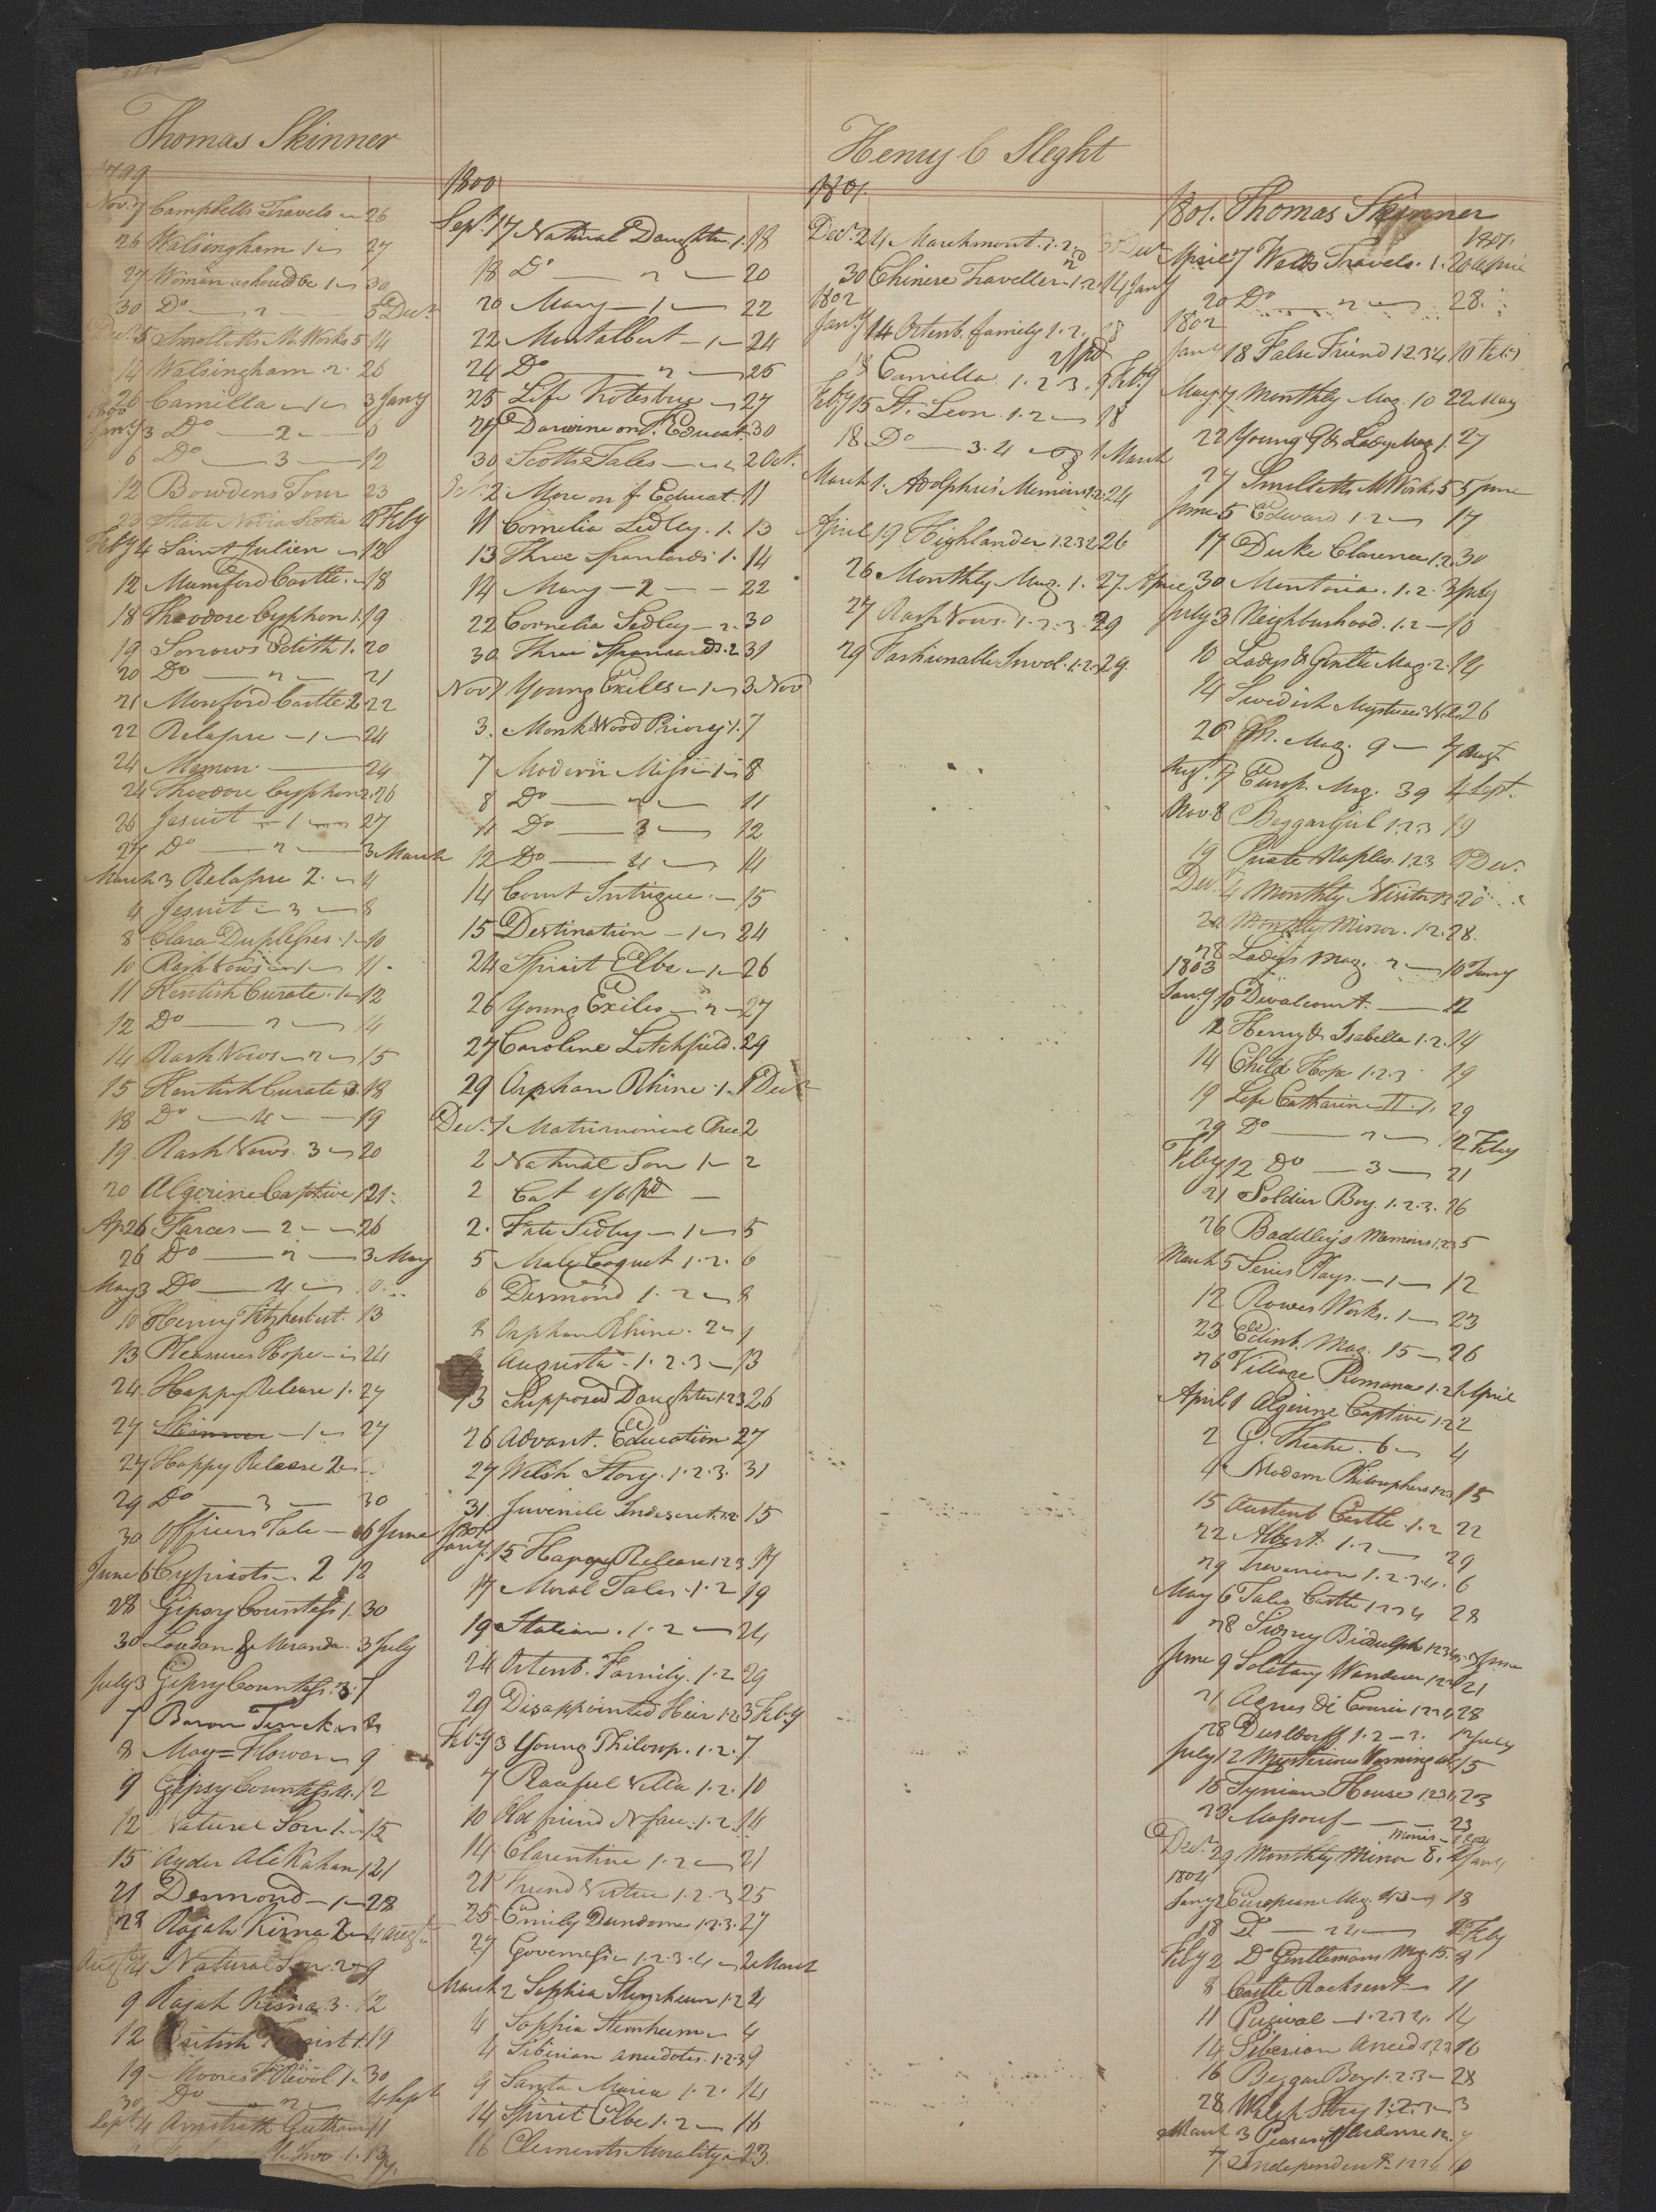 Thomas Skinner
1799
Nov. 7 Campbells Travels 26
26 Walsingham 1 27
27 Woman as should be 1 30
30 Do 2 5 Decr
Decr 5 Smolletts M. Works 5 14
14 Walsingham 2 26
26 Camilla 1 3 Jany
1800
Jany 3 Do 2 6
6 Do 3 12
12 Bowdens Tour 23
23 State Nova Scotia Feby
Feby 4 Saint Julien 12
12 Munsford Castle 18
18 Theodore Cyphon 1. 19
19 Sorrows Edith 1. 20
20 Do 2 21
21 Monford Castle 2 22
22 Relapse 1 24
24 Memon 24
24 Theodore Cyphon 2. 26
26 Jesuit 1 27
27 Do 2 3 March
March 3 Relapse 2. 4
4 Jesuit 3 8
8 Clara Duplesses 1 10
10 Rash Vows 1 11
11 Kentish Curate 1 12
12 Do 2 14
14 Rash Vows 2 15
15 Kentish Curate 3. 18
18 Do 4 19
19 Rash Vows 3 20
20 Algerine Captive 1 21
Ap 26 Farces 2 26
26 Do 2 3 May
May 3 Do 4
10 Henry Fitzherbert 13
13 Pleasures Hope 24
24 Happy Release 1. 27
27 Skinner 1 27
27 Happy Release 2
29 Do 3 30
30 Officers Tale 6 June
June 6 Cypriots 2 12
28 Gipsy Countess 1. 30
30 Loudon & Miranda 3 July
July 3 Gipsy Countess 3. 7
7 Baron Trenck 8
8 May=Flower 9
9 Gipsy Countess 4. 12
12 Natural Son 1 15
15 Ayder Ali Kahan 1 21
21 Desmond 1 28
28 Rajah Kisna 2 4 Augt
Augt 4 Natural Son 2 9
9 Rajah Kisna 3. 12
12 British 1. 19
19 Moores F. Revol 1. 30
30 Do 2 4 Sept
Sept 4 11
1. 13
1800
Sept 17 Natural Daughter 1. 18
18 Do 2 20
20 Mary 1 22
22 Montalbert 1 24
24 Do 2 25
25 Life Kotesbue 27
27 Darwine on F. Educat. 30
30 Scotts Tales 2 Oct.
Oct. 2 More on f. Educat. 11
11 Cornelia Sedley. 1. 13
13 Three Spaniards 1. 14
14 Mary 2 22
22 Cornelia Sedley 2. 30
30 Three Spaniards. 2 31
Nov 1 Young Exiles 1 3 Nov
3. Monk Wood Priory 1. 7
7 Modern Miss 1 8
8 Do 2 11
11 Do 3 12
12 Do 4 14
14 Court Intrigue 15
15 Destination 1 24
24 Spirit Elbe 1 26
26 Young Exiles 2 27
27 Caroline Litchfield. 29
29 Orphan Rhine 1. 1 Decr
Decr. 1 Matrimonial 2
2 Natural Son 1 2
2 Cat 1/6 pd
2. Fate Sedley 1 5
5 Male Coquet 1. 2. 6
6 Desmond 1. 2 8
8 Orphan Rhine. 2 9
9 Augusta 1. 2. 3 13
13 Supposed Daughter 1.2.3 26
26 Advant. Education 27
27 Welsh Story. 1. 2. 3. 31
31. Juvenile Indiscret. 1.2 15
1801
Jany. 15 Happy Release 1 2 3. 17
17 Moral Tales. 1. 2 19
19 Italian. 1. 2 24
24 Ortenb. Family. 1. 2 29
29 Disappointed Heir 1.2 3 Feby
Feby 3 Young Philosop. 1. 2. 7
7 Peaceful Villa 1. 2. 10
10 Old friend N face 1. 2. 14
14 Clarentine 1. 2 21
21 Friend Virtue 1. 2. 3 25
25. Emily Dundorne 1.2.3. 27
27 Governess 1. 2. 3. 4 2 March
March 2 Sophia Sternheim 1.2 4
4 Sophia Sternheim 4
4 Siberian Anecdotes. 1.2.3 9
9 Santa Maria 1. 2. 14
14 Spirit Elbe 1. 2 16
16 Clements Morality 23.
Henry C Sleght
1801.
Decr. 24 Marchmont. 1. 2. 30 Decr
30 Chinese Traveller 1. 2 14 Jany
1802
Jany 14 Ortenb. family 1. 2. 18
2/ pd
18 Camilla 1. 2. 3. 9 Feby
Feby 15 St. Leon. 1. 2 18
18 Do 3. 4 1 March
March 1. Adolphus Memoirs 1.2. 24
April 19 Highlander 1. 2 26
26 Monthly Mag. 1. 27. April
27 Rash Vows. 1. 2. 3. 29
29 Fashionable Invol. 1.2. 29.
1801. Thomas Skinner
1801.
April 7 Welds Travels. 1. 20 April
20 Do 2 28.
1802
Jany 18 False Friend 1 2 3 4 10 Feby
May. 7 Monthly Mag. 10 22 May
22 Young G & Lady Mag. 1. 27
27 Smolletts M Works 5 5 June
June 5 Edward 1. 2 17
17 Duke Clarence 1.2. 30
30 Montoria. 1. 2. 3 July
July 3 Neighburhood. 1. 2 10
10 Ladys & Gentle Mag. 2. 14
14 Swedish Mysteries 26
26 M. Mag. 9 7 Augt
Augt. 7 Europ. Mag. 39 4 Sept.
Nov 8 Beggar Girl 1.2.3 19
19 Naples. 1 2 3 Decr.
Decr. 4 Monthly Visitor 13 20
20 Monthly Mirror. 12. 28.
28 Ladys Mag. 2 10 Jany
1803
Jany 10 Devalcourt. 12
12 Henry & Isabella 1. 2. 14
14 Child Hope 1.2.3 19
19 Life Catharine II. 1. 29
29 Do 2 12 Feby
Feby 12 Do 3 21
21 Soldier Boy. 1. 2. 3. 26
26 Baddley's Memoirs 1.2.3 5
March 5 Series Plays. 1 12
12 Rowes Works. 1 23
23 Edinb. Mag. 15 26
26 Village Romance 1. 2 1 April
April 1 Algerine Captive 1.2 2
2 G. Theatre. 6 4
4 Modern Philosophers 1.2.3 15
15 Austenb Castle. 1. 2 22
22 Albert. 1. 2 29
29 Trevanion 1. 2. 3. 4. 6
May 6 Tales Castle 1 2 3 4 28
28 Sidney Bidulph 9 June
June 9 Solitary Wanderer 21
21 Agnes di Courci 1 2 3 4 28
28 Dusldorff 1. 2 3. 12 July
July 12 Mysterious Warning 15
15 Tynian House 1 2 3 4. 23
23 Massouf 23
Decr. 29 Monthly Mirror 8. 2 Jany
1804
Jany 2 European Mag. 43 18
18 Do 44 2 Feby
Feby 2 Do Gentlemans Mag. 15. 8
8 Castle Rackrent 11
11 Percival 1. 2. 3 4. 14
14 Siberian Anecd 1.2.3 16
16 Beggar Boy 1. 2. 3 28
28 Welsh Story 1.2.3 3
March 3 Peasant Ardenne 1 2. 7
7. Independent 1 2 10